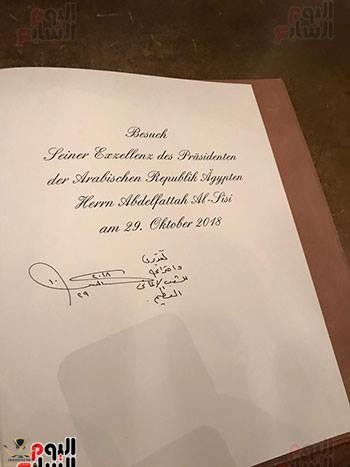 اليوم السابع
Besuch
Seiner Exzellenz des Präsidenten
der Arabischen Republik Ägypten
Herrn Abdelfattah Al-Sisi
am 29. Oktober 2018
تقديرى
واحترامى
للشعب الألمانى
العظيم.
السيسى
٢٠١٨
١٠
٢٩
اليوم السابع